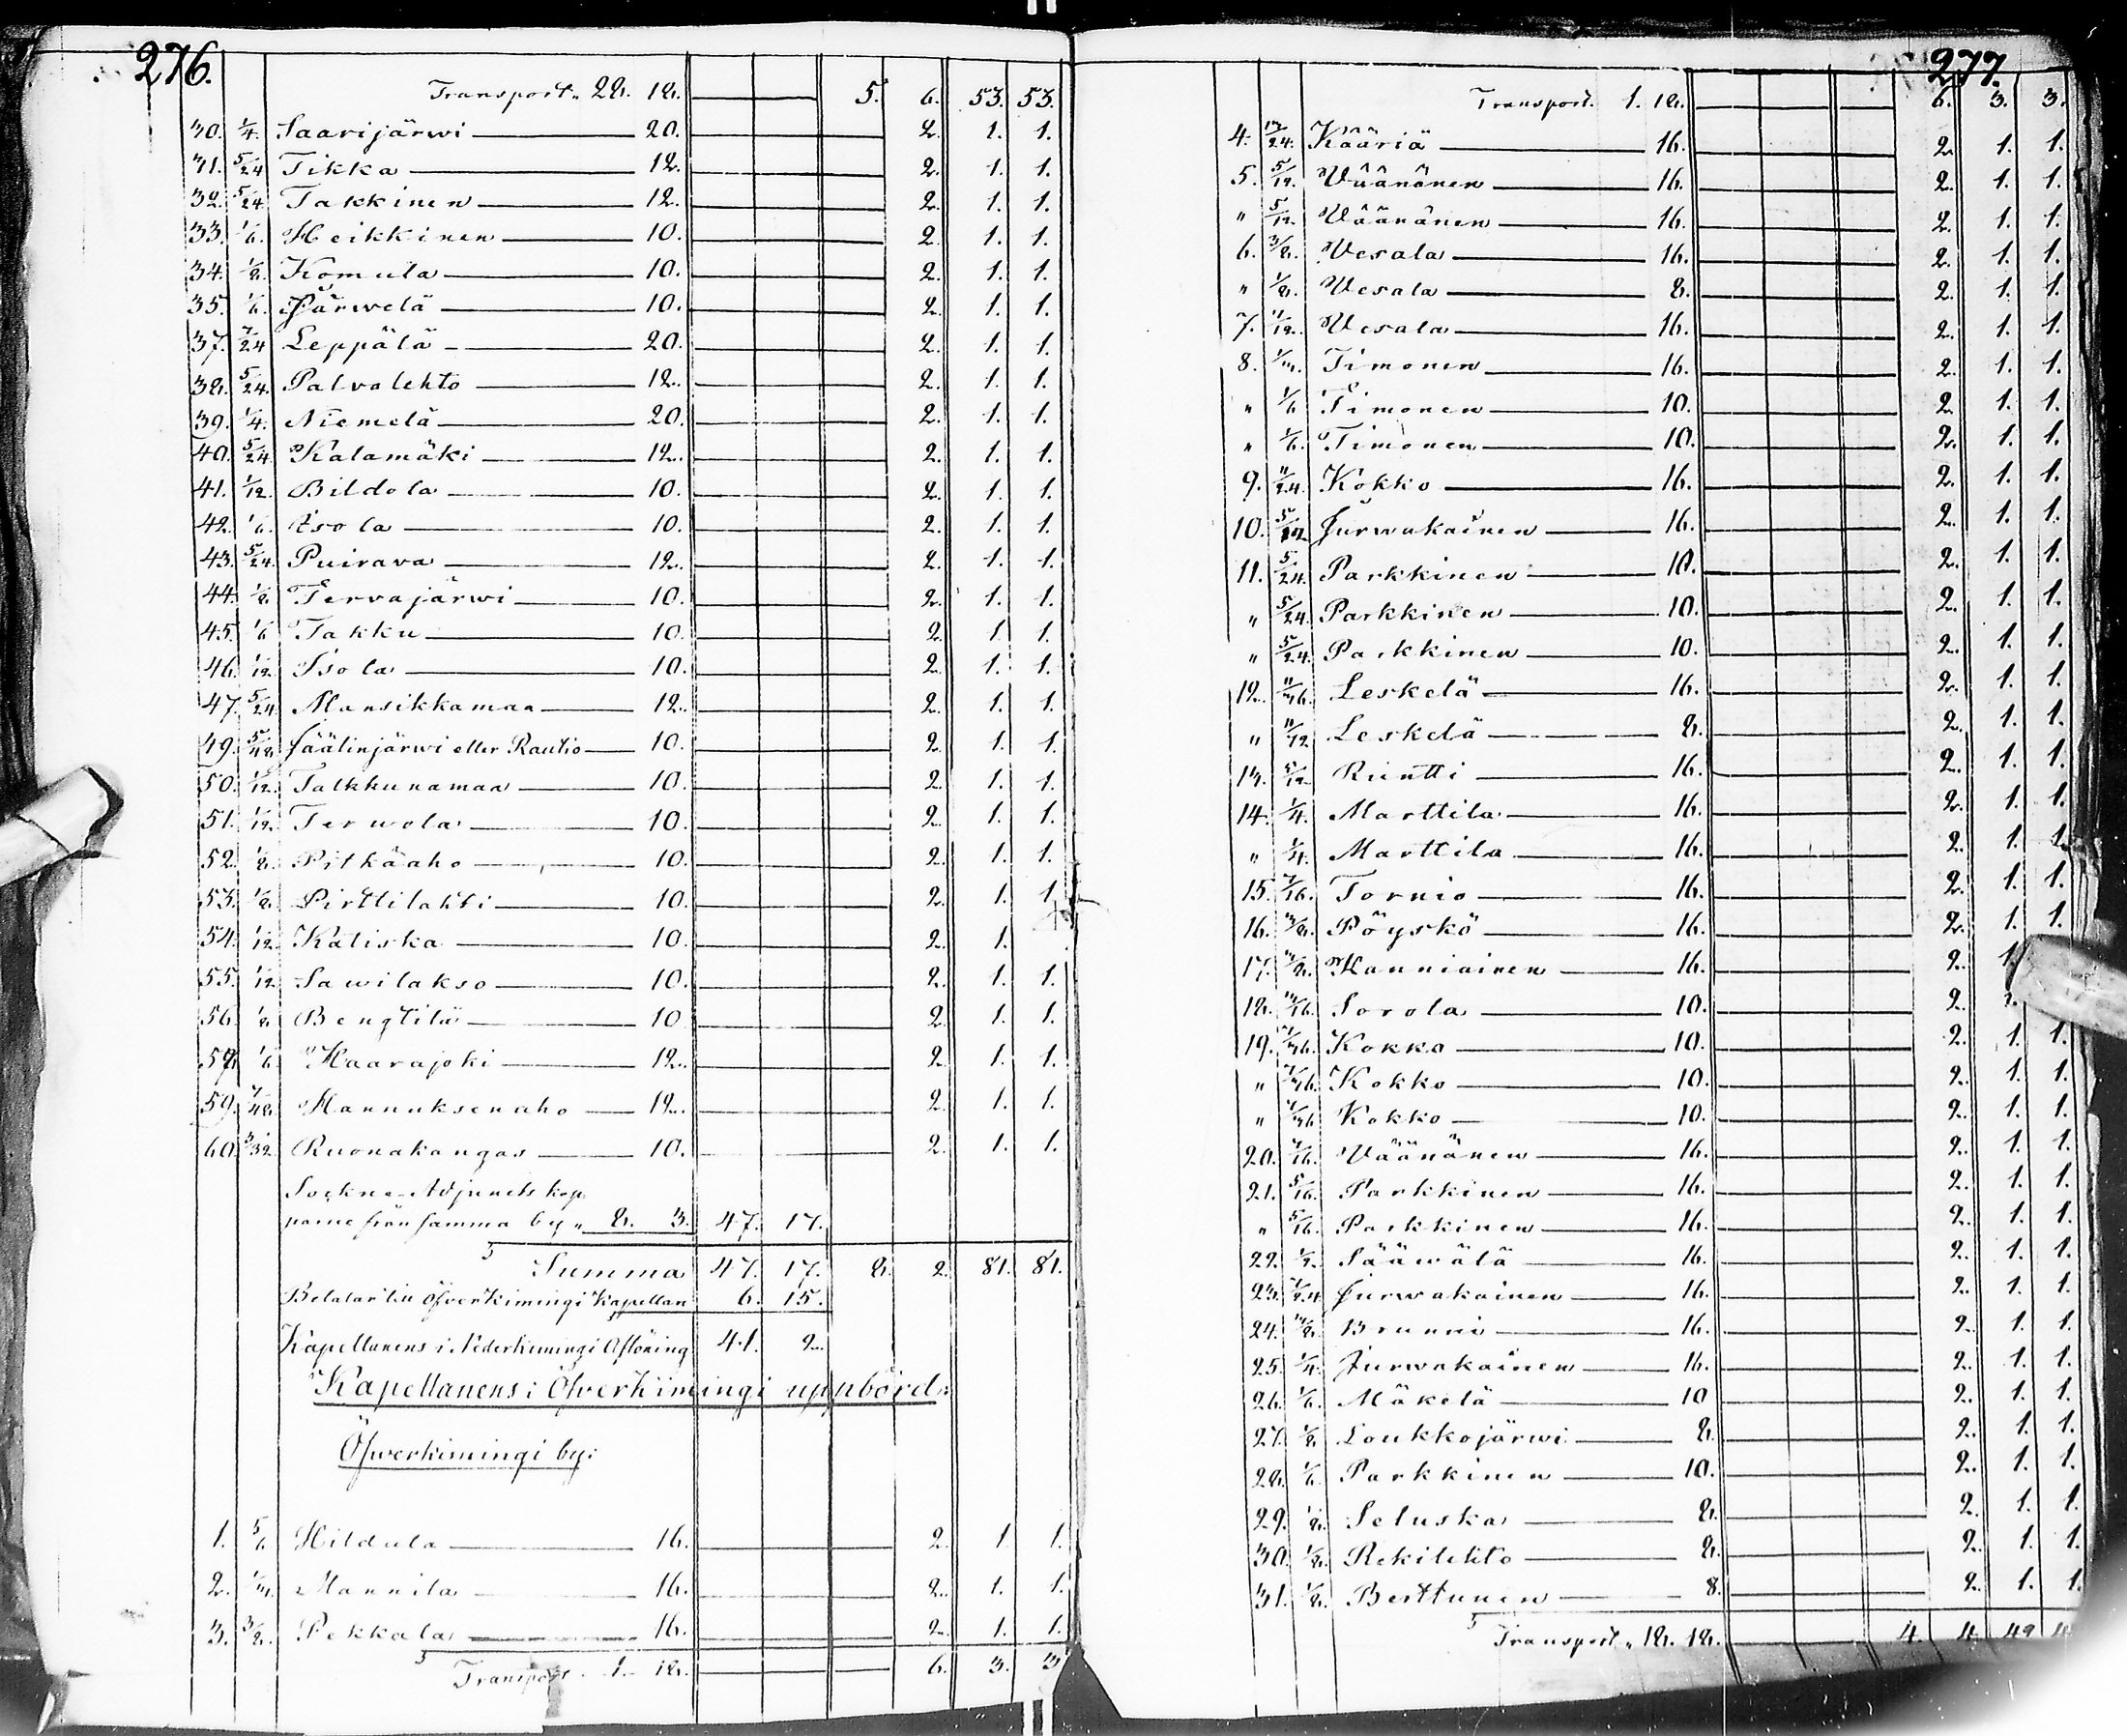 276.
Transport „ 28. 18. 5. 6. 53. 53.
30. 1/4. Saarijärwi 20. 2. 1. 1.
31. 5/24 Tikka 12. 2. 1. 1.
32. 5/24 Takkinen 12. 2. 1. 1.
33. 1/6. Heikkinen 10. 2. 1. 1.
34. 1/8. Komula 10. 2. 1. 1.
35. 1/6. Järwelä 10. 2. 1. 1.
37. 7/24 Leppälä 20. 2. 1. 1.
38. 5/24. Palvalehto 12. 2. 1. 1.
39. 1/4. Niemelä 20. 2. 1. 1.
40. 5/24 Kalamäki 12. 2. 1. 1.
41. 1/12. Bildola 10. 2. 1. 1.
42. 1/6. Isola 10. 2. 1. 1.
43. 5/24. Puirava 12. 2. 1. 1.
44. 1/8. Tervajärwi 10. 2. 1. 1.
45. 1/6 Takku 10. 2. 1. 1.
46. 1/12. Isola 10. 2. 1. 1.
47. 5/24. Mansikkamaa 12. 2. 1. 1.
49. 5/48. Jäälinjärwi eller Rautio 10. 2. 1. 1.
50. 1/12. Talkkunamaa 10. 2. 1. 1.
51. 1/12. Terwola 10. 2. 1. 1.
52. 1/8. Pitkäaho 10. 2. 1. 1.
53. 1/8. Pirttilahti 10. 2. 1. 1.
54. 1/12. Katiska 10. 2. 1.
55. 1/12. Sawilakso 10. 2. 1. 1.
56. 1/8. Bengtilä 10 2. 1. 1.
1/6 Haarajoki 12. 2. 1. 1.
59. 7/48. Hannuksenaho 12. 2. 1. 1.
60. 3/32. Ruonakangas 10. 2. 1. 1.
Sockne-Adjuncts kap
parne från samma by „ 8. 3. 47. 17.
Summa 47. 17. 8. 2. 81. 81.
Betalar till Öfverkimingi Kapellan 6. 15.
Kapellanens i Nederkimingi Aflöning 41. 2.
Kapellanens i Öfverkimingi uppbörd:
Öfwerkimingi by:
1. 5/6 Hildula 16. 2. 1. 1.
2. Mannila 16. 2. 1. 1.
3. 3/8. Pekkala 16. 2. 1. 1.
Transport 1. 18. 6. 3. 3
277.
Transport. 1. 18. 6. 3. 3.
4. 13/24. Kääriä 16. 2. 1. 1.
5. 5/12. Väänänen 16. 2. 1. 1.
„ 5/12. Väänänen 16. 2. 1. 1.
6. 3/8. Vesala 16. 2. 1. 1.
„ 1/8. Vesala 8. 2. 1. 1.
7. 11/12. Vesala 16. 2. 1. 1.
8. Timonen 16. 2. 1. 1.
„ 1/6 Timonen 10. 2. 1. 1.
„ 1/6. Timonen 10. 2. 1. 1.
9. 11/24. Kokko 16. 2. 1. 1.
10. 5/12 Jurwakainen 16. 2. 1. 1.
11. 5/24. Parkkinen 10. 2. 1. 1.
„ 5/24. Parkkinen 10. 2. 1. 1.
„ 5/24. Parkkinen 10. 2. 1. 1.
12. Leskelä 16. 2. 1. 1.
„ Leskelä 8. 2. 1. 1.
13. 5/12. Rientti 16. 2. 1. 1.
14. 1/4. Marttila 16. 2. 1. 1.
„ 1/4. Marttila 16. 2. 1. 1.
15. 7/16. Tornio 16. 2. 1. 1.
16. 3/8. Pöyskö 16. 2. 1. 1.
17. 3/8. Hanniainen 16. 2. 1.
18. Sorola 10. 2. 1.
19. Kokko 10. 2. 1. 1.
„ Kokko 10. 2. 1. 1.
„ Kokko 10. 2. 1. 1.
20. 7/16. Väänänen 16. 2. 1. 1.
21. 5/16. Parkkinen 16. 2. 1. 1.
„ 5/16. Parkkinen 16. 2. 1. 1.
22. Sääwälä 16. 2. 1. 1.
23. 7/24 Jurwakainen 16. 2. 1. 1.
24. 3/8. Brunni 16. 2. 1. 1.
25. 1/4. Jurwakainen 16. 2. 1. 1.
26. 1/6. Mäkelä 10 2. 1. 1.
27. 1/8. Loukkojärwi 8. 2. 1. 1.
28. 1/6. Parkkinen 10. 2. 1. 1.
29. 1/8. Seluska 8. 2. 1. 1.
30. 1/8. Rekilehto 8. 2. 1. 1.
31. 1/8. Berttunen 8. 2. 1. 1.
Transport „ 18. 18. 4. 4. 42